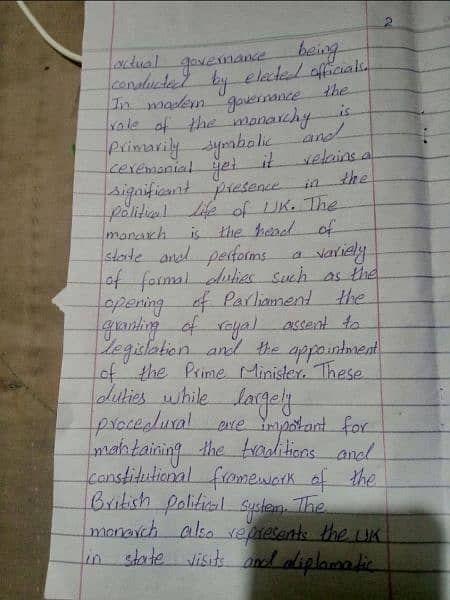 2
actual governance being
conducted by elected officials.
In modern governance the
role of the monarchy is
primarily symbolic and
ceremonial yet it retains a
significant presence in the
political life of UK. The
monarch is the head of
state and performs a variety
of formal duties such as the
opening of Parliament the
granting of royal assent to
legislation and the appointment
of the Prime Minister. These
duties while largely
procedural are important for
maintaining the traditions and
constitutional framework of the
British Political system. The
monarch also represents the UK
in state visits and diplomatic